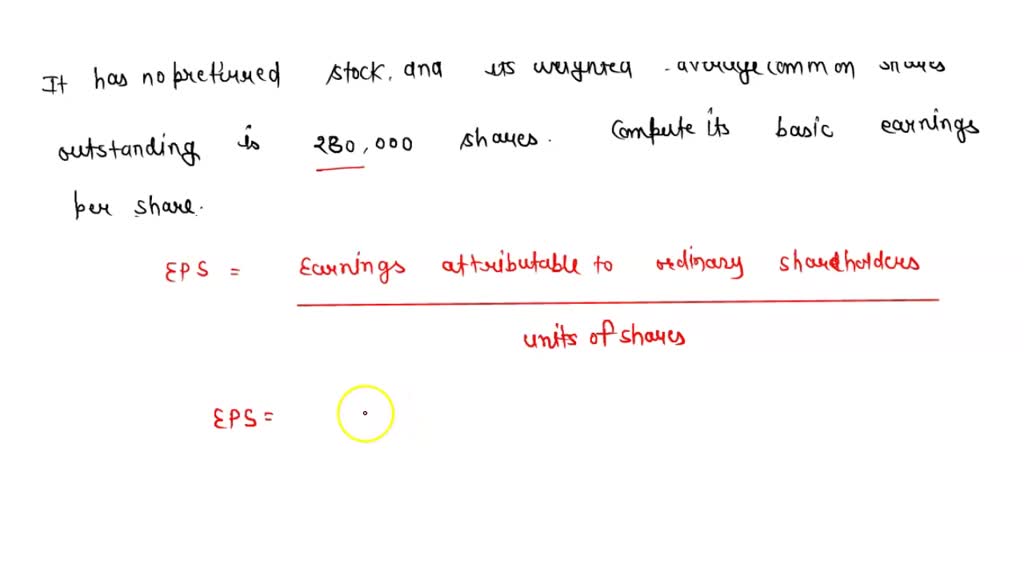 It has no preferred stock, and its weighted - average common shares
outstanding is 280,000 shares. Compute its basic earnings
per share.
EPS = Earnings attributable to ordinary shareholders
units of shares
EPS =